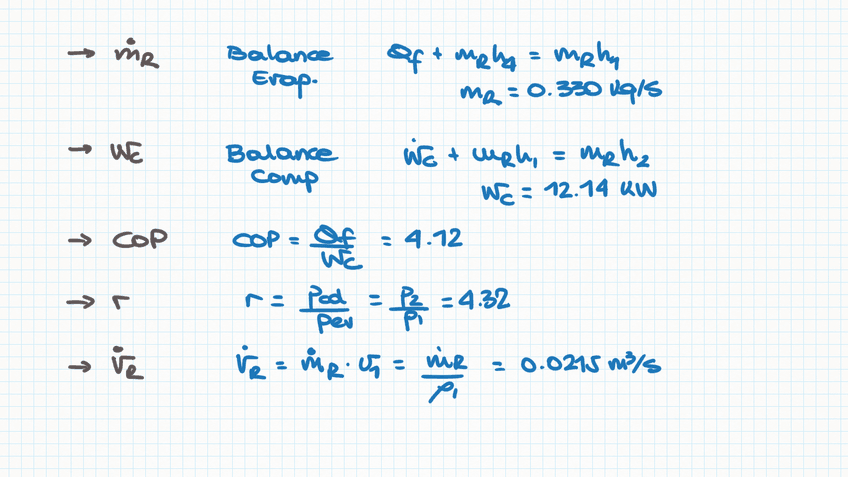 → ṁR Balance Evap. Qf + mRh4 = mRh1
mR = 0.330 kg/s
→ Wc Balance Comp Ẇc + mRh1 = mRh2
Wc = 12.14 kW
→ COP COP = Qf/Wc = 4.12
→ r r = Pcd/Pev = P2/P1 = 4.32
→ V̇R V̇R = ṁR · v1 = ṁR/ρ1 = 0.0215 m³/s